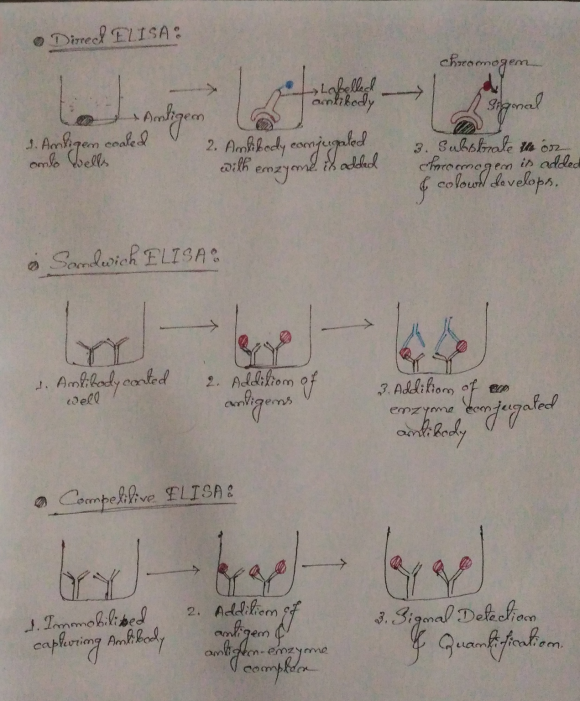 Direct ELISA:
Antigen
Labelled
antibody
chromogen
Signal
1. Antigen coated
onto wells
2. Antibody conjugated
with enzyme is added
3. Substrate or
chromogen is added
& colour develops.
Sandwich ELISA:
1. Antibody coated
well
2. Addition of
antigens
3. Addition of
enzyme conjugated
antibody
Competitive ELISA:
1. Immobilised
capturing Antibody
2. Addition of
antigen &
antigen-enzyme
complex
3. Signal Detection
& Quantification.